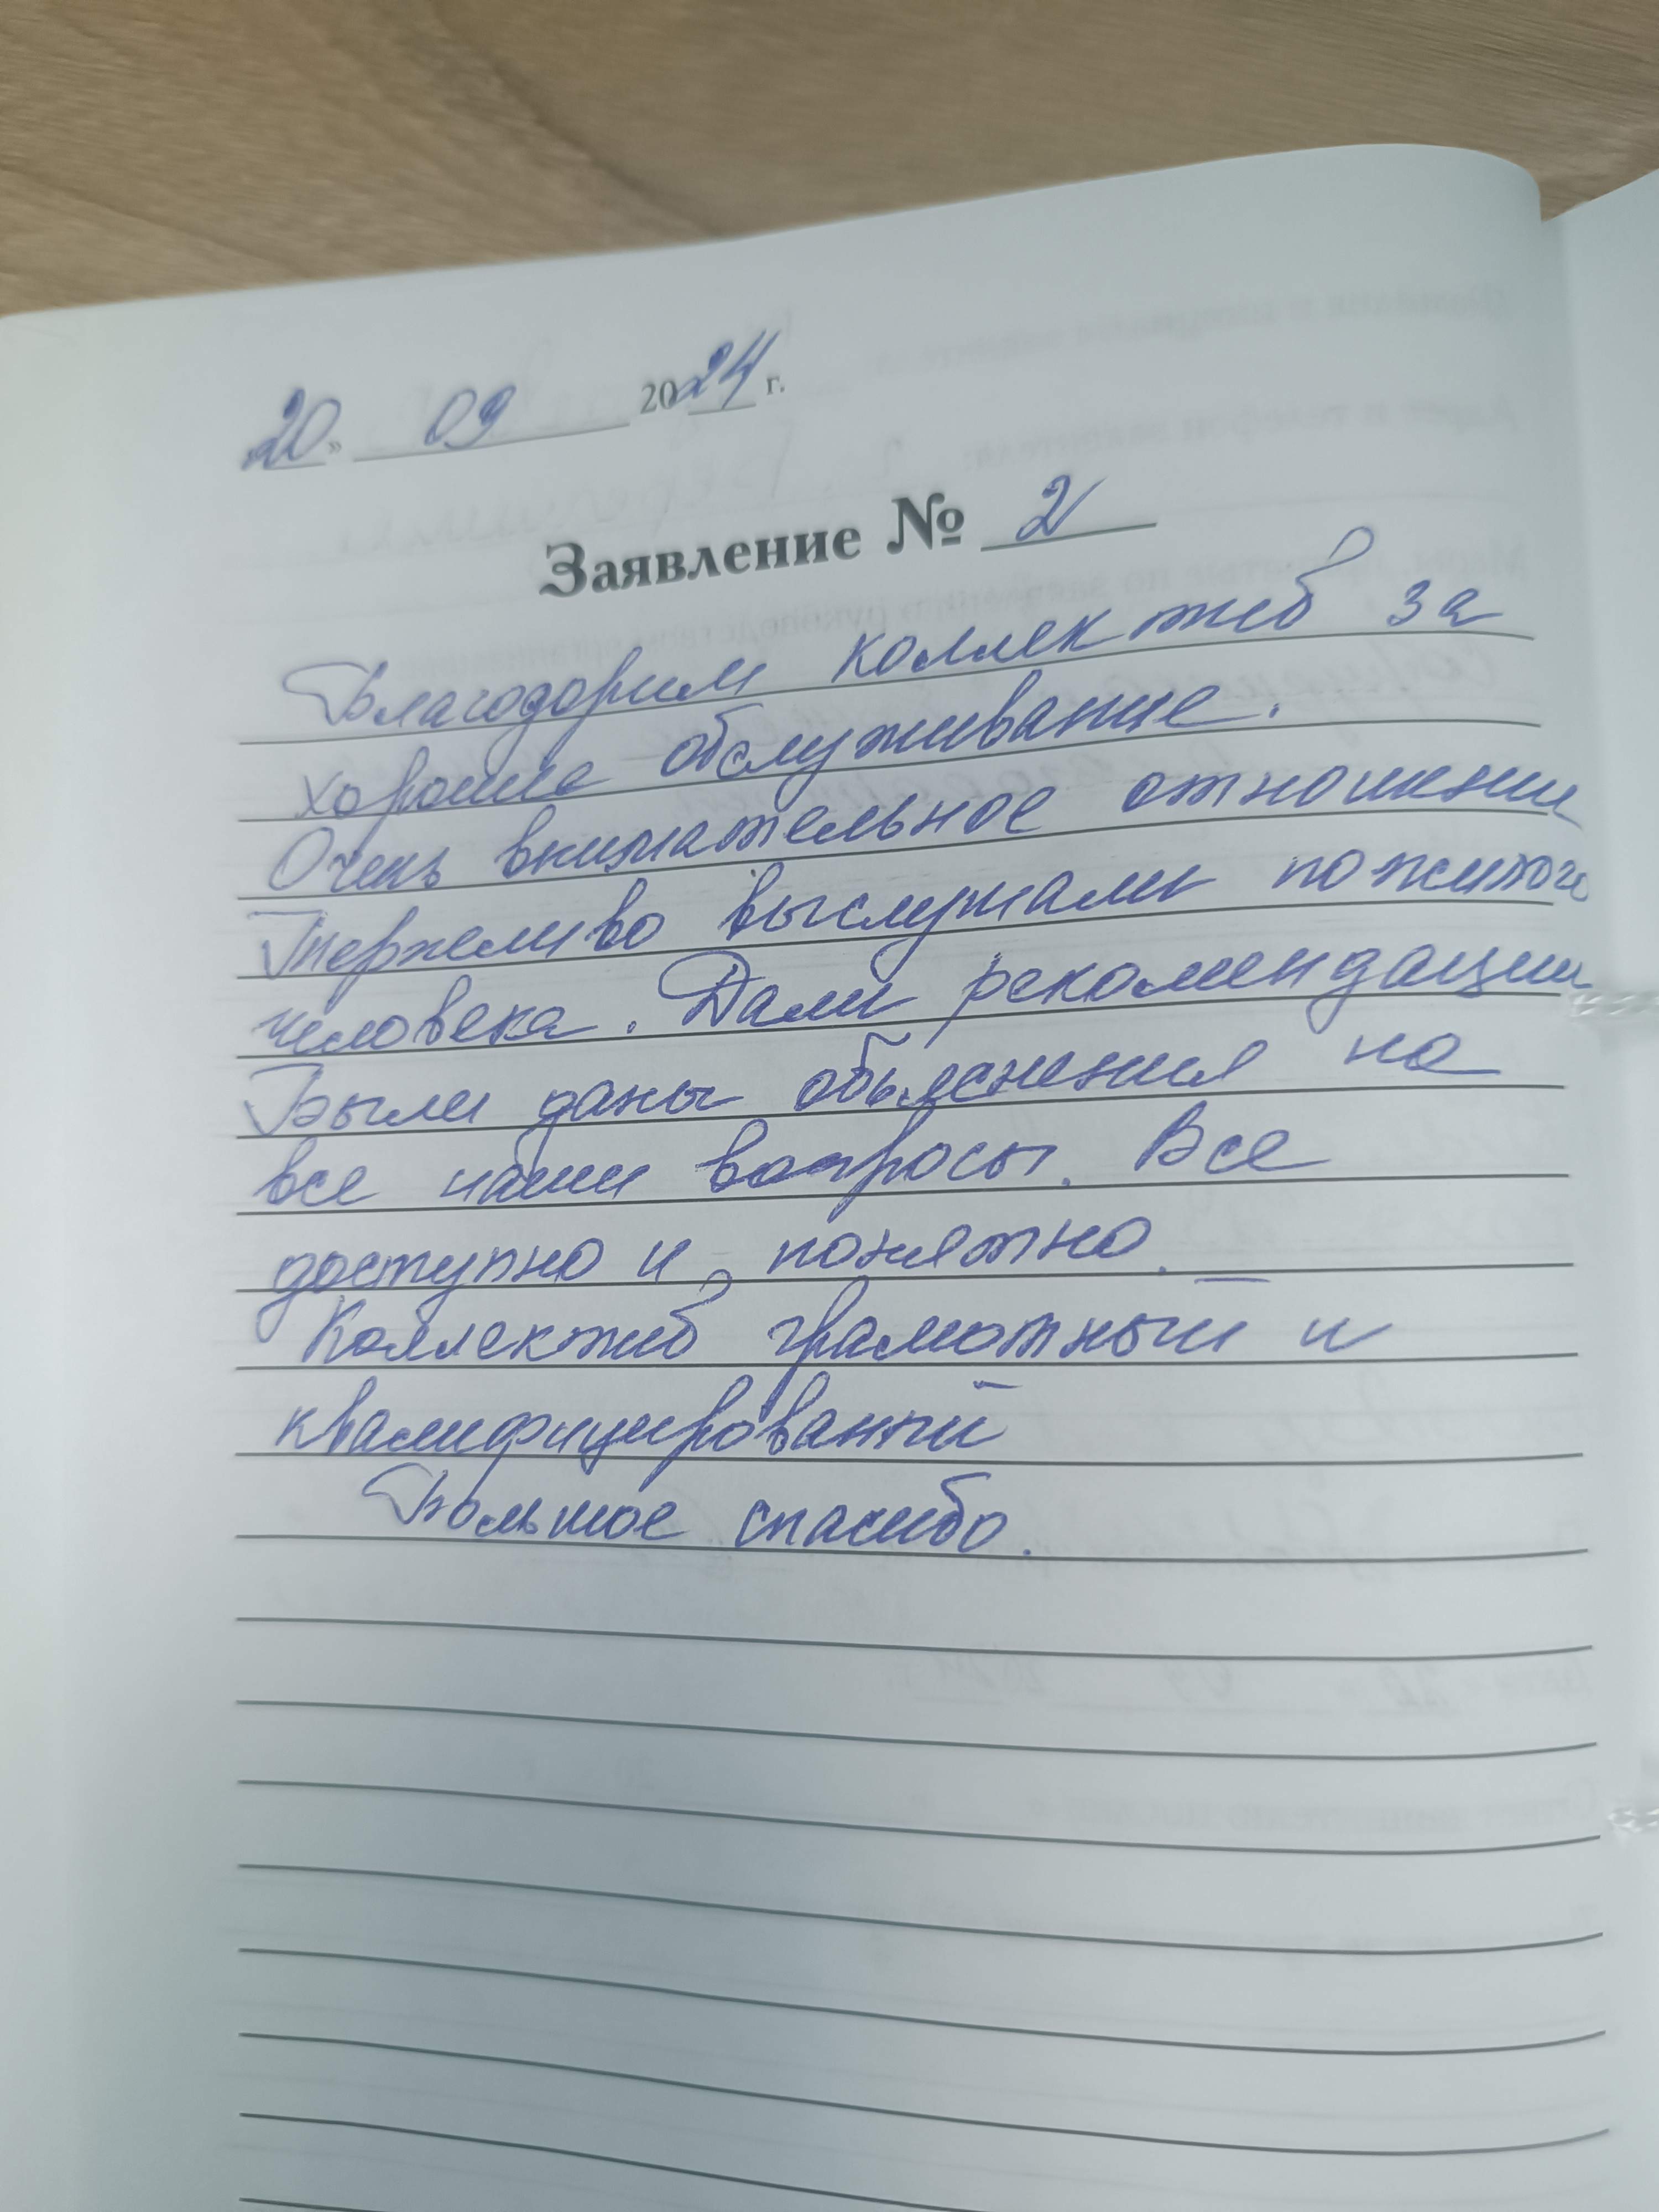 «20» 09 2024 г.
Заявление № 2
Благодарим коллектив за
хорошие обслуживание.
Очень внимательное отношении
Терпеливо выслушали пожитого
человека. Дали рекомендации
Были даны объяснения на
все наши вопросы. Все
доступно и понятно.
Коллектив грамотный и
квалифицированный
Большое спасибо.